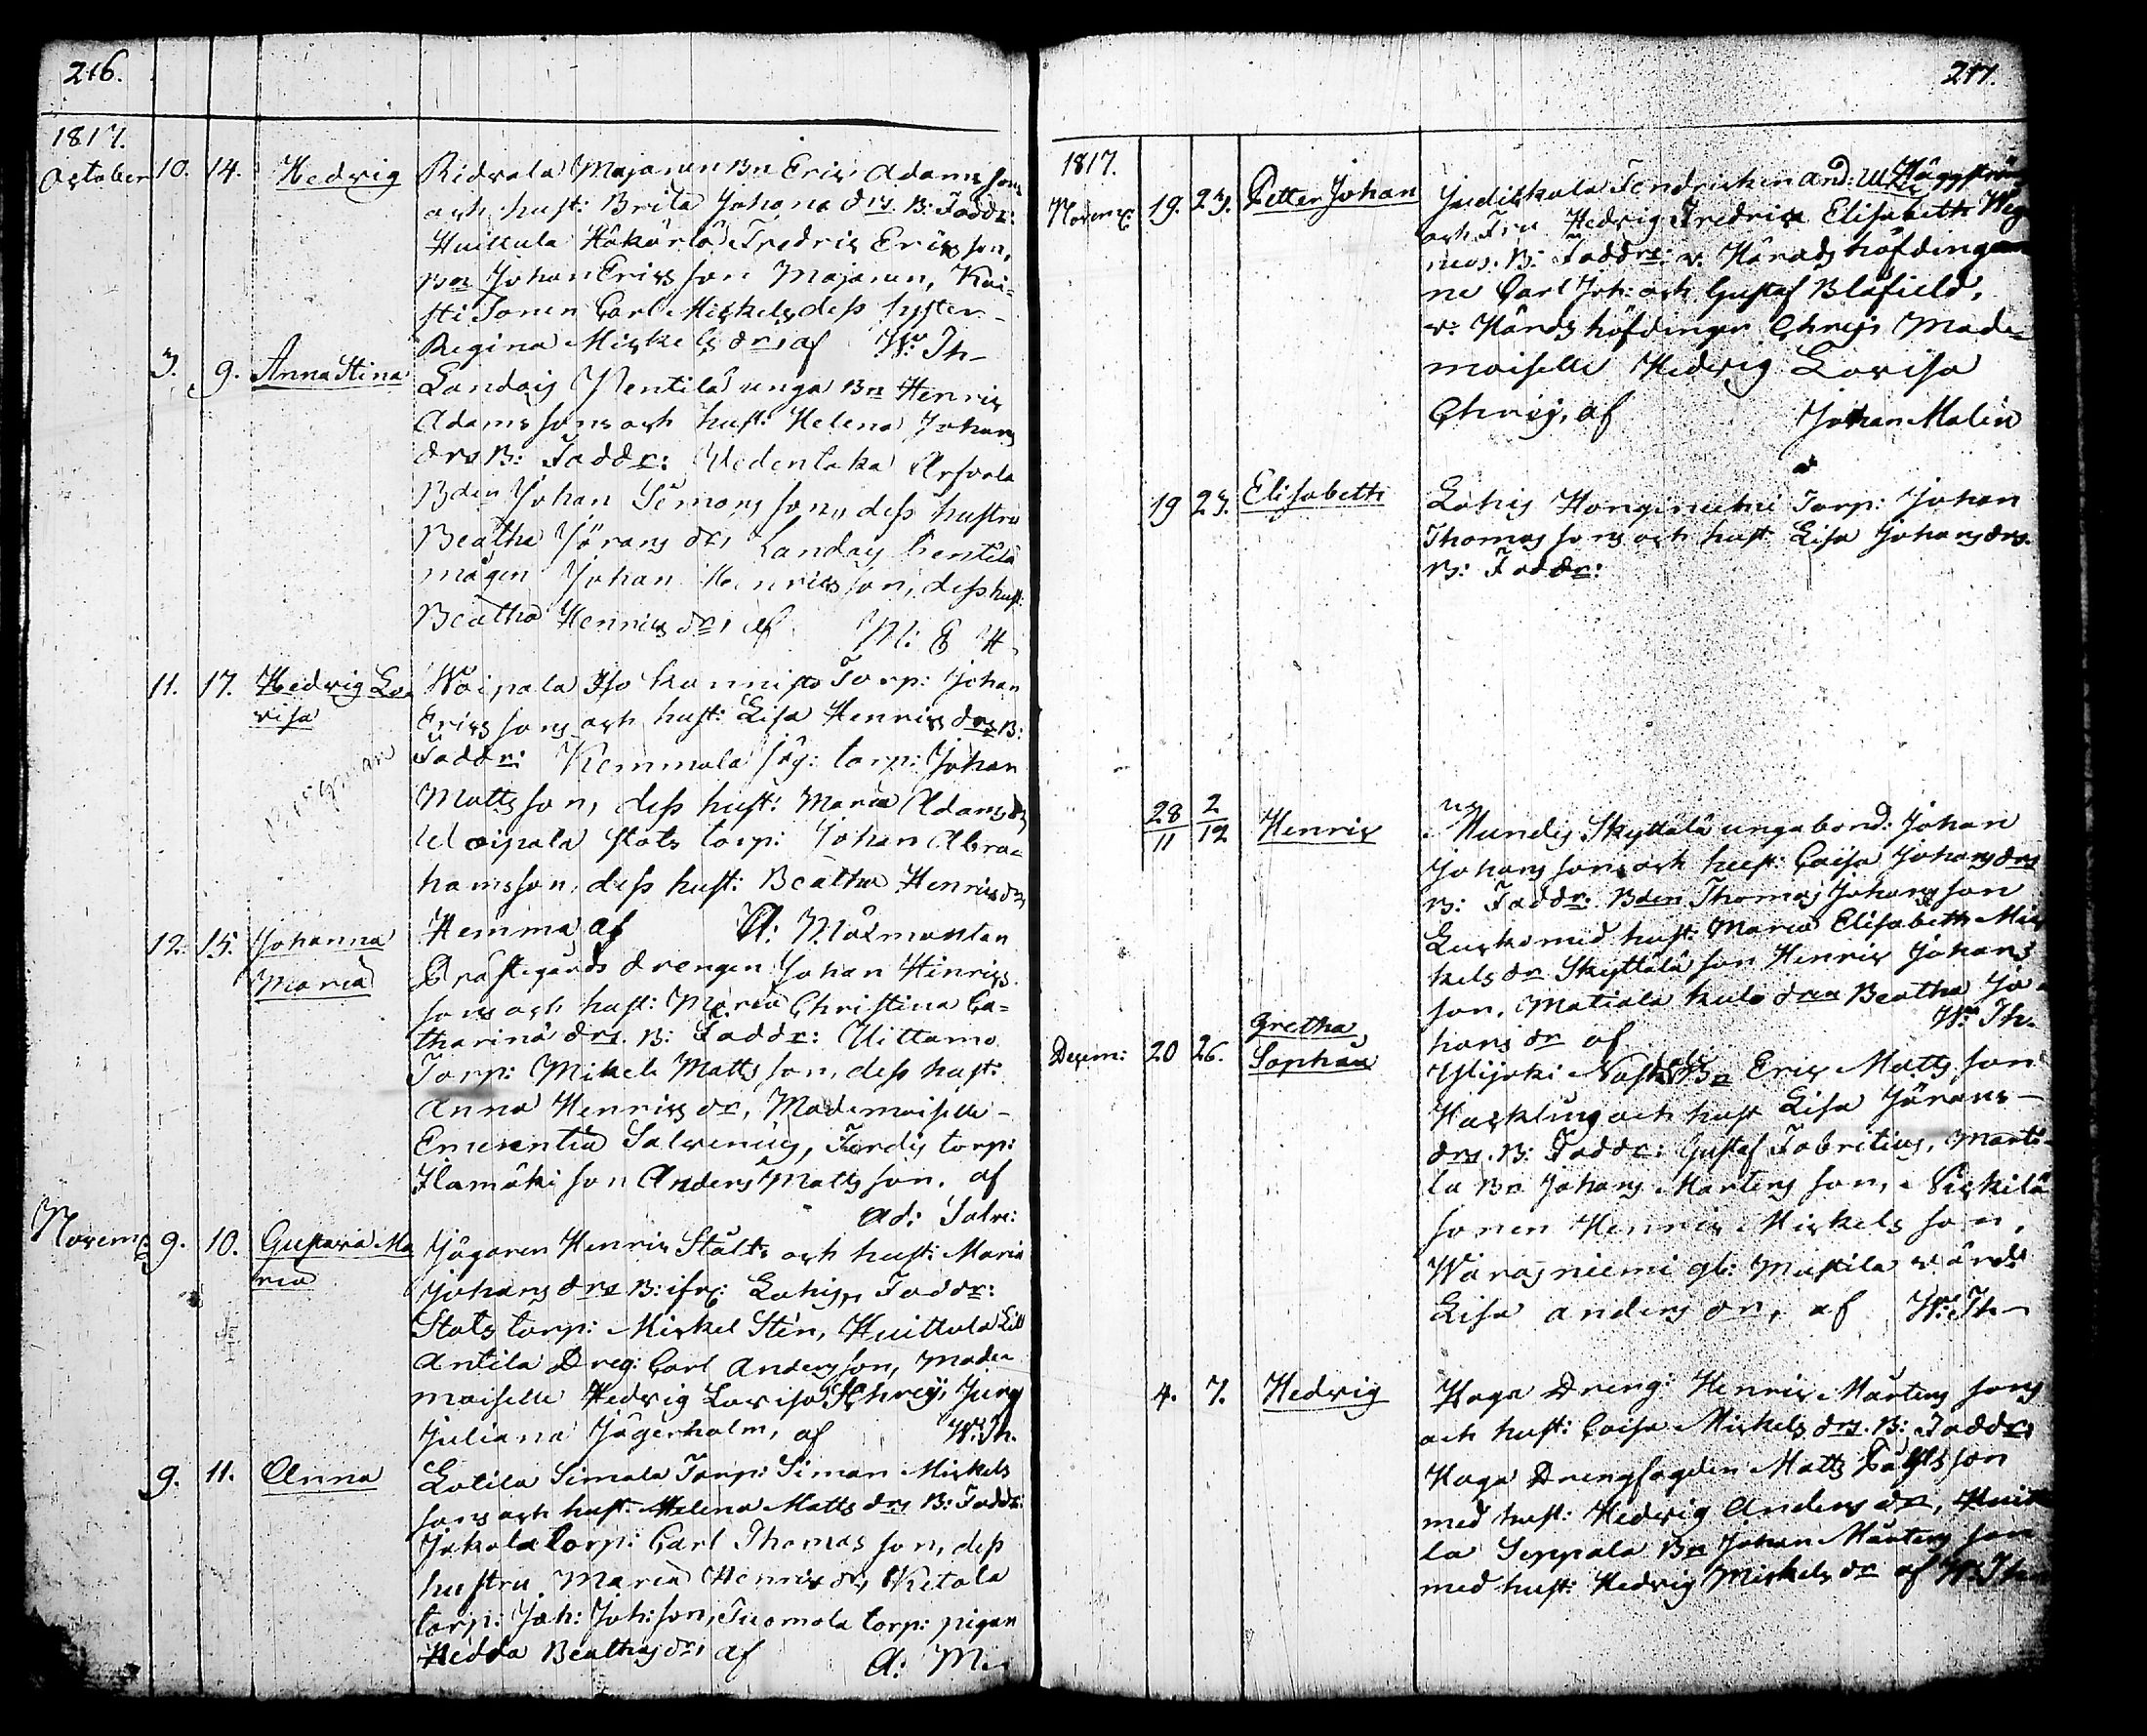 216.
1817.
October 10. 14. Hedvig Ridvala Majanen Bn Eric Adams sons
och hust: Brita Johans drs. B: Faddr:
Huittula Kåkårla Fredric Ericsson,
Bn Johan Ericsson Majanen, Kai-
sti Sonen Carl Mickels dess syster
Regina Mickels dr, af W: Th-
3. 9. Anna Stina Landais Pentilä unga Bn Henric
Adams sons och hust: Helena Johans
drs B: Faddr: Uedentaka Arfvola
Bden Johan Simons son, dess hustru
Beatha Jörans dr, Landais Pentilä
mågen Johan Henricsson, dess hust:
Beatha Henrics dr, af M: E H
11. 17. Hedvig Lo- Woipala Iso kannisto Torp: Johan
visa Erics sons och hust: Lisa Henrics drs B:
Faddr: Kemmola såg: torp: Johan
Bergman
Mattsson, dess hust: Maria Adams dr
Woipala Stats torp: Johan Abra-
hamsson, dess hust: Beatha Henrics dr,
Hemma, af A: Malmonten
12. 15. Johanna Prästegårds drengen Johan Hinrics
Maria sons och hust: Maria Christina Ca-
tharina drs. B: Faddr: Uittamo
Torp: Mikel Matts son, dess hust:
Anna Henrics dr, Mademoiselle
Emerentia Salvenius, Jordis torp:
Ilamäki son Anders Matts son. af
Ad: Salve:
Novemb: 9. 10. Gustava Ma Jägaren Henric Stålts och hust: Maria
ria Johans drs B: ifr: Lahis, Faddr:
Stats torp: Mickel Sten, Huittula Lill
Antila Dreg: Carl Andersson, Made-
moiselle Hedvig Lovisa Chreij, Jung
Juliana Jägerholm, af W: Th.
9. 11. Anna Lotila Simola Torp: Simon Mickels
sons och hust: Helena Matts drs B: Faddr:
Jokola torp: Carl Thomas son, dess
hustru Maria Henrics dr, Kitola
torp: Joh: Joh: son, Tuomola torp: pigan
Hedda Beathas dr, af A: M.
217.
1817.
Novemb: 19. 23. Petter Johan Judickala Fendricken And: W: Häggström
och Fru Hedvig Fredrica Elisabeth Weg
neus. B: Faddr: v. Häradshöfdingar
ne Carl Joh: och Gustaf Blåfield,
v: Härdshöfdingen Chreij, Made-
moiselle Hedvig Lovisa
Chreij, af Johan Malin
19 23. Elisabeth Lahis Honginiemi Torp: Johan
Thomas sons och hust Lisa Johans drs.
B: Faddr:
28/11 2/12 Henric Nundis Skyttälä unga bond: Johan
Johans sons och hust: Caisa Johans drs
B: Faddr: Bden Thomas Johans son
Lusko med hust: Maria Elisabeth Mic
kels dr Skyttälä son Henric Johans
son, Matiala kulo dren Beatha Jo-
hans dr af W: Th.
Decem: 20 26. Gretha
Sophia Ylijoki Bn Eric Matts son
Hasklings och hust Lisa Jörans
drs. B: Faddr: Gustaf Fabritius, Marti-
la Bn Johans Mårtens son, Pickilä
sonen Henric Mickels son,
Warasniemi gl: Mattila vård:
Lisa Anders dr, af W: Th-
4. 7. Hedvig Haga Dreng: Henric Mårtens sons
och hust: Caisa Mickels drs. B: Faddr:
Haga Drengfogden Matts son
med hust: Hedvig Anders dr, Huitt
la Seppälä Bn Johan Mårtens son
med hust: Hedvig Mickels dr af W: Th